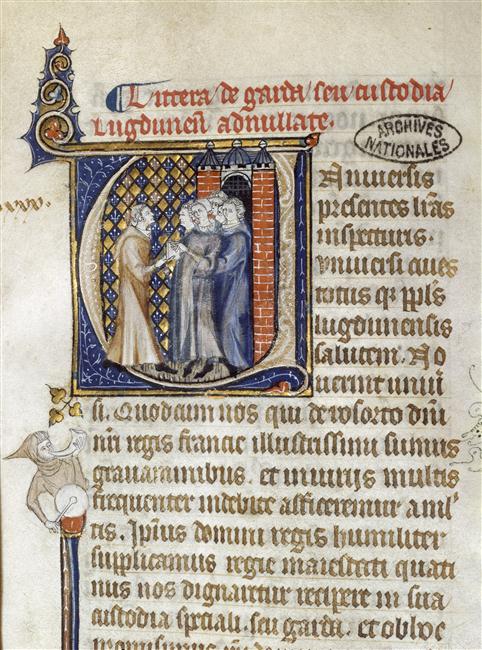 Littera de garda seu custodia
lugdunen adnullate.
ARCHIVES
NATIONALES
niversis
presentes lras
inspecturis.
vniversi cives
totus qz ppls
lugdunensis
salutem. No
verint univ
si. Quod cum nos qui de ressorto dni
nri regis francie illustrissimi sumus
gravaminibus et iniuriis multis
frequenter indebite afficeremur a mul
tis. Ipsius domini regis humiliter
supplicamus regie maiestati quati
nus nos dignaretur recipere in sua
custodia spciali seu garda. et oblvc